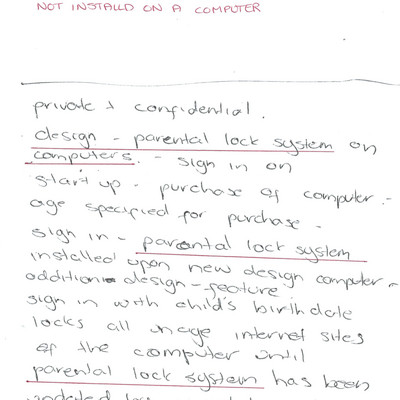 NOT INSTALLD ON A COMPUTER
private & confidential.
design - parental lock system on
computers. - sign in on
start up - purchase of computer. -
age specified for purchase -
sign in - parental lock system
installed upon new design computer -
addition - design - feature
sign in with child's birthdate
locks all internet sites
of the computer until
parental lock system has been